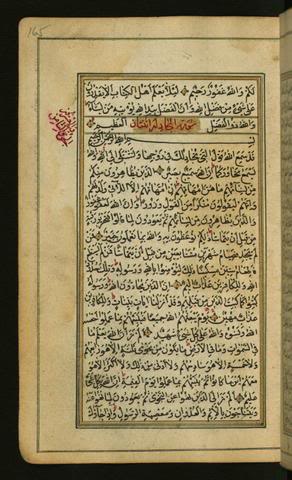 165
لكم والله غفور رحيم لئلا يعلم اهل الكتاب الا يقدرون
على شئ من فضل الله وان الفضل بيد الله يؤتيه من يشاء
والله ذو الفضل سورة المجادلة اثنتان العظيم
بسم الله الرحمن الرحيم
قد سمع الله قول التى تجادلك فى زوجها وتشتكى الى الله والله
يسمع تحاوركما ان الله سميع بصير الذين يظاهرون منكم
من نسائهم ما هن امهاتهم ان امهاتهم الا اللائى ولدنهم
وانهم ليقولون منكرا من القول وزورا وان الله لعفو غفور
والذين يظاهرون من نسائهم ثم يعودون لما قالوا فتحرير رقبة
من قبل ان يتماسا ذلكم توعظون به والله بما تعملون خبير فمن
لم يجد فصيام شهرين متتابعين من قبل ان يتماسا فمن لم يستطع
فاطعام ستين مسكينا ذلك لتؤمنوا بالله ورسوله وتلك حدود
الله وللكافرين عذاب اليم ان الذين يحادون الله ورسوله
كبتوا كما كبت الذين من قبلهم وقد انزلنا ايات بينات وللكافرين
عذاب مهين يوم يبعثهم الله جميعا فينبئهم بما عملوا احصيه
الله ونسوه والله على كل شئ شهيد الم تر ان الله يعلم ما
فى السموات وما فى الارض ما يكون من نجوى ثلثة الا هو رابعهم
ولا خمسة الا هو سادسهم ولا ادنى من ذلك ولا اكثر الا هو
معهم اين ما كانوا ثم ينبئهم بما عملوا يوم القيمة ان الله بكل شئ
عليم الم تر الى الذين نهوا عن النجوى ثم يعودون لما نهوا عنه
ويتناجون بالاثم والعدوان ومعصية الرسول واذا جاؤك